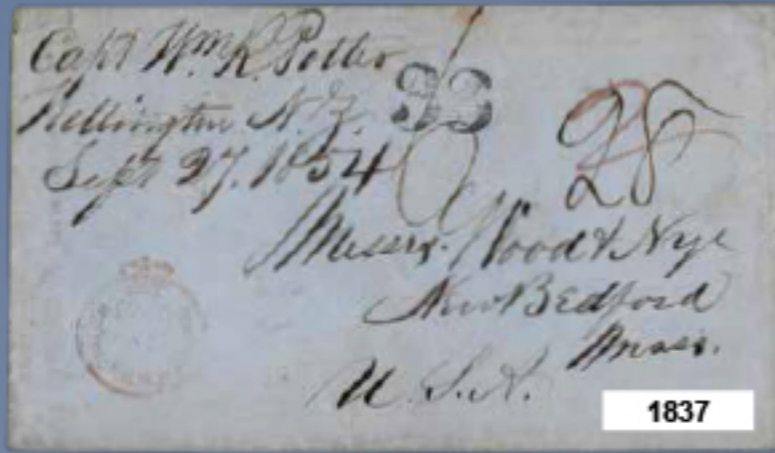 Capt Wm R. Potter
Wellington N.Z.
Sept 27. 1854
33
28
Messrs. Wood & Nye
New Bedford
Mass.
U.S.A.
1837